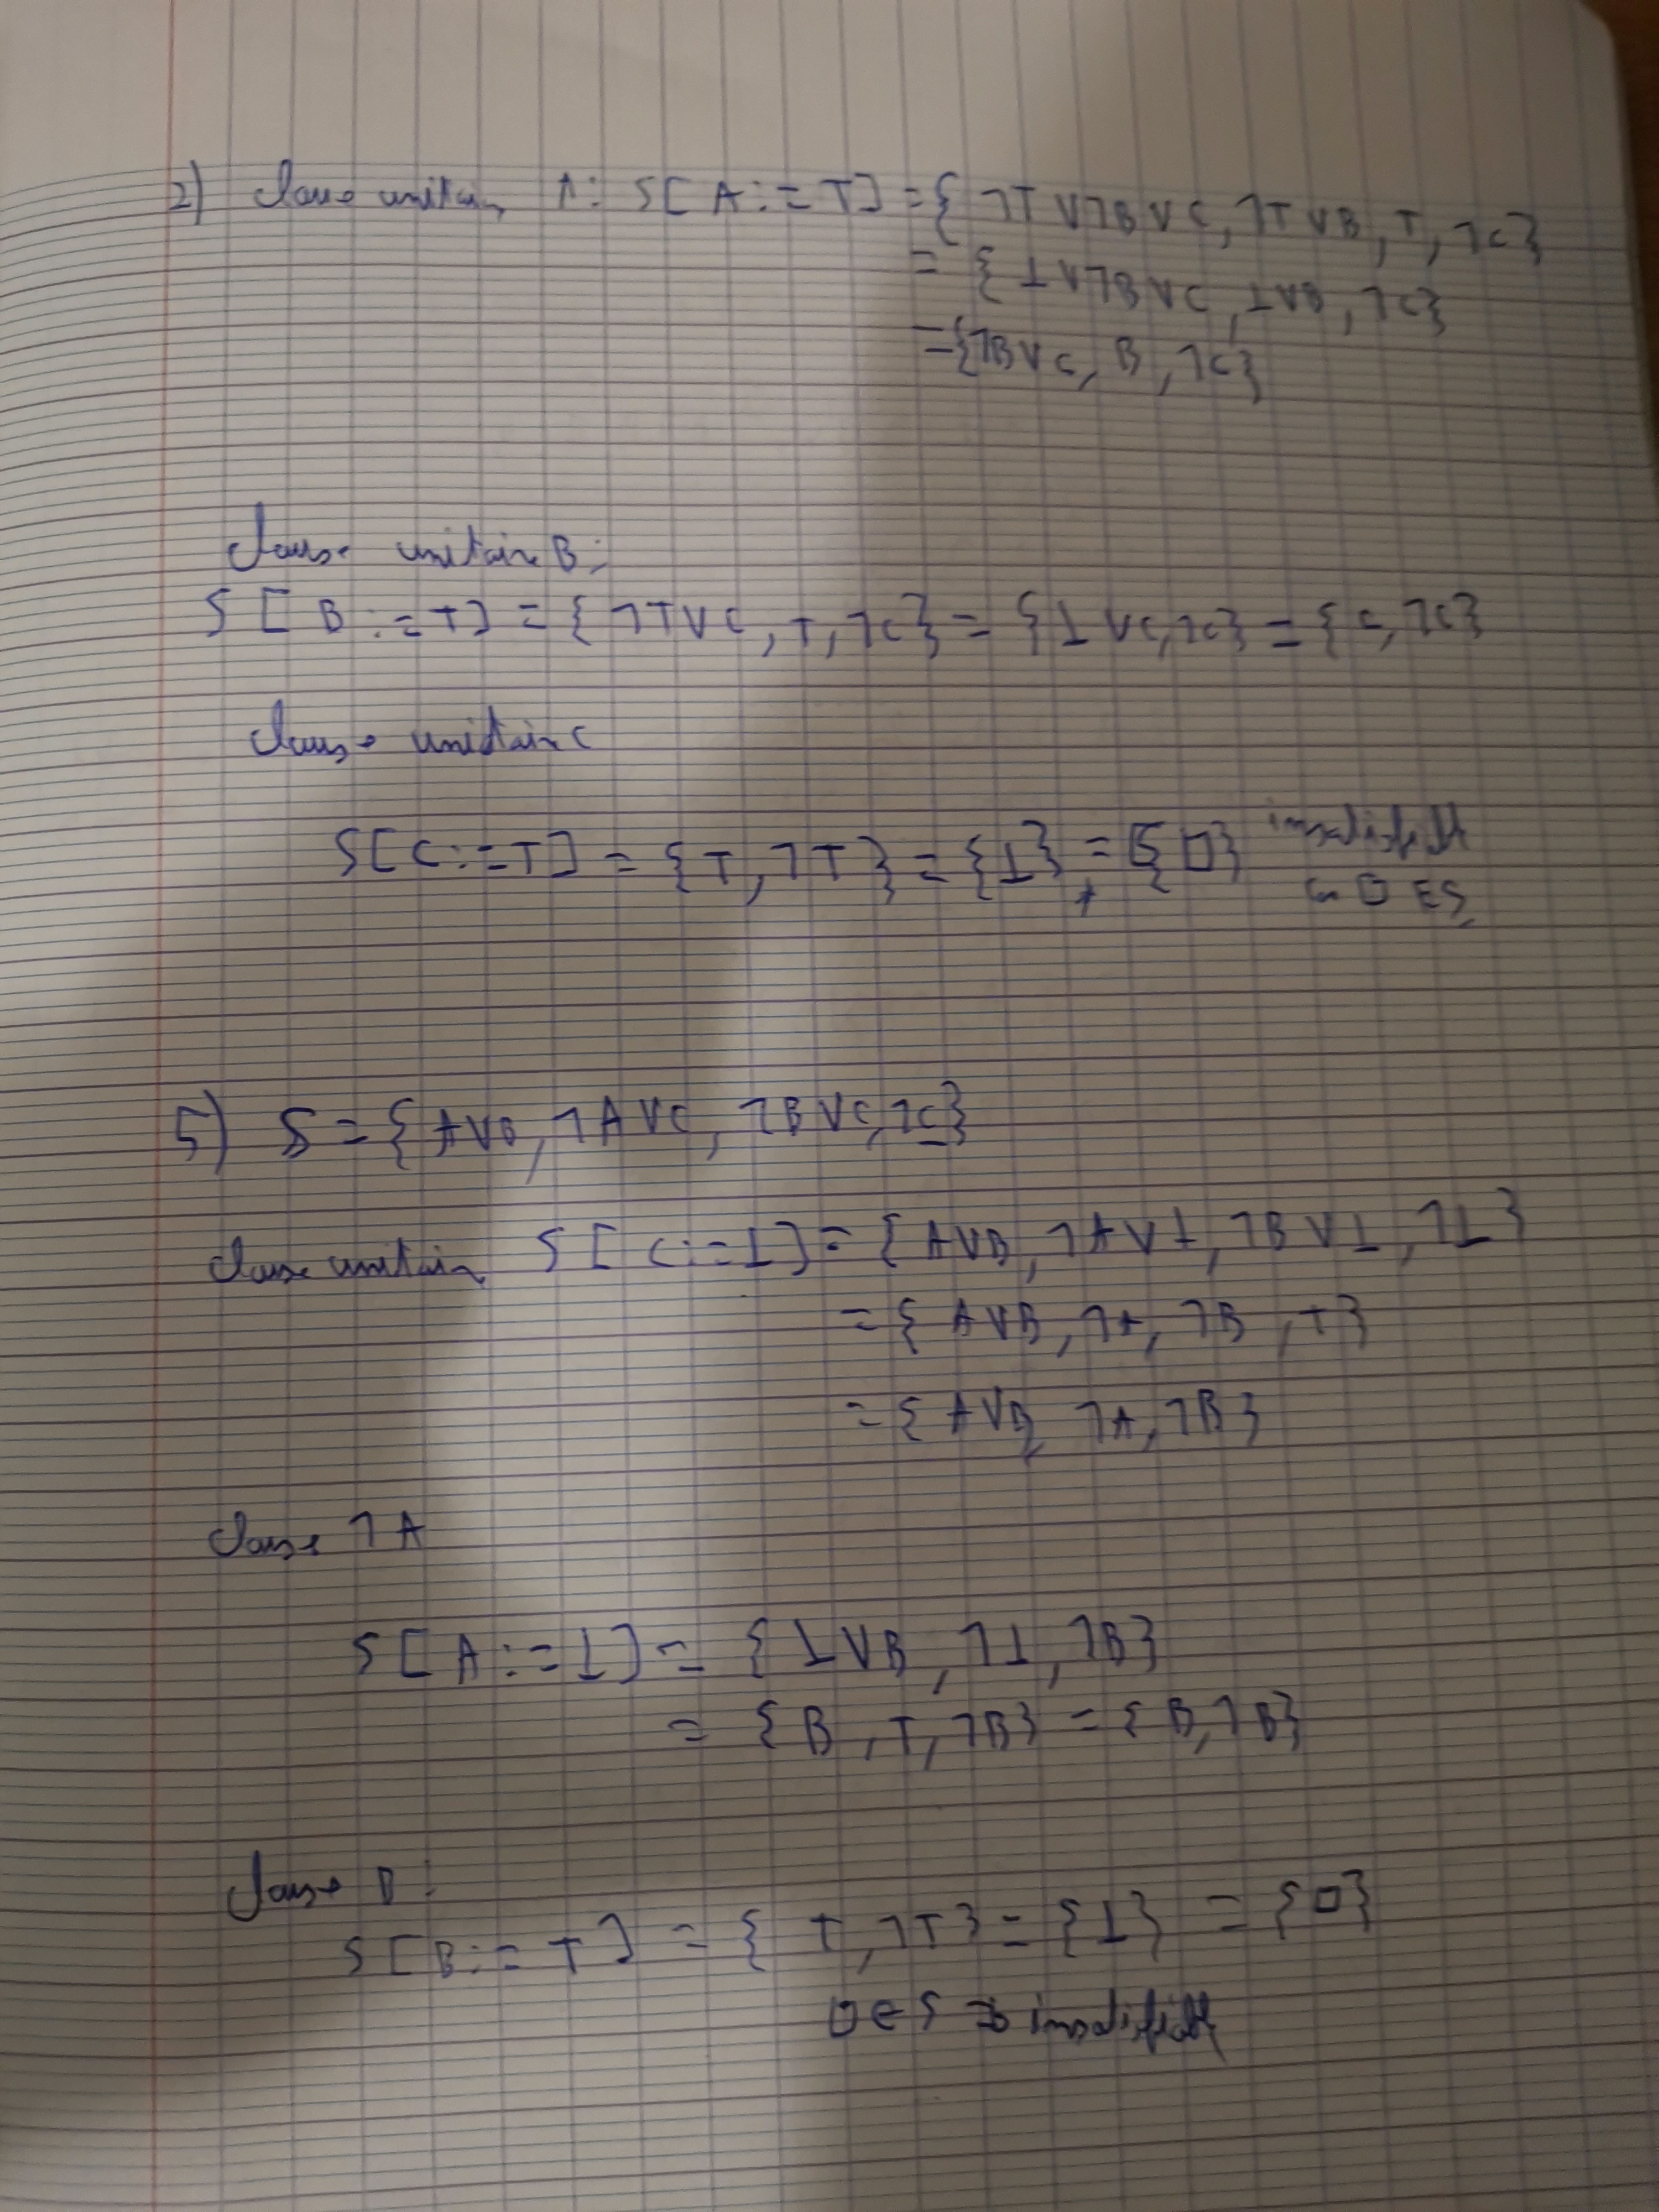 2) Clause unitaire A: S[A:=T] = {¬T∨¬B∨C, ¬T∨B, T, ¬C}
= {⊥∨¬B∨C, ⊥∨B, ¬C}
= {¬B∨C, B, ¬C}
Clause unitaire B:
S[B:=T] = {¬T∨C, T, ¬C} = {⊥∨C, ¬C} = {C, ¬C}
Clause unitaire C
S[C:=T] = {T, ¬T} = {⊥} = {□} insatisfiable
□ ∈ S
5) S = {A∨B, ¬A∨C, ¬B∨C, ¬C}
Clause unitaire S[C:=⊥] = {A∨B, ¬A∨⊥, ¬B∨⊥, ¬⊥}
= {A∨B, ¬A, ¬B, T}
= {A∨B, ¬A, ¬B}
Clause ¬A
S[A:=⊥] = {⊥∨B, ¬⊥, ¬B}
= {B, T, ¬B} = {B, ¬B}
Clause B:
S[B:=T] = {T, ¬T} = {⊥} = {□}
□∈S ⇒ insatisfiable